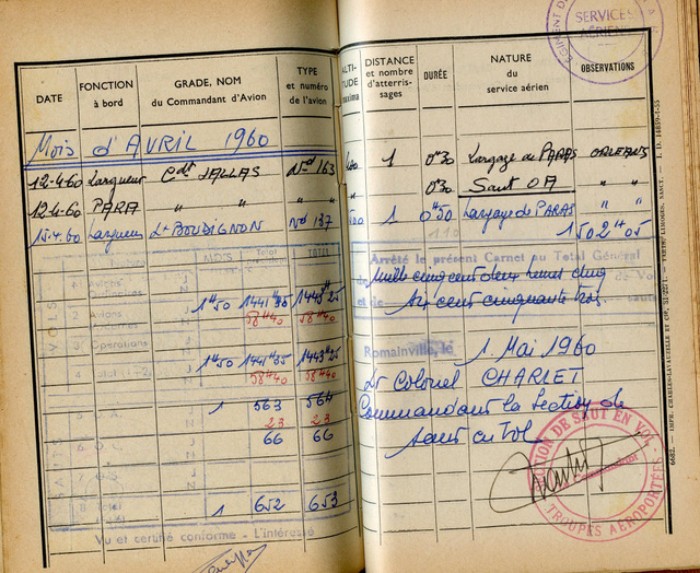 SERVICES
AÉRIENS
DATE
FONCTION
à bord
GRADE, NOM
du Commandant d'Avion
TYPE
et numéro
de l'avion
DISTANCE
et nombre
d'atterris-
sages
DURÉE
NATURE
du
service aérien
OBSERVATIONS
Mois d'AVRIL 1960
12-4-60 Largueur Cdt JALLAS Nd 163 1 0H30 Largage de PARAS ORLEANS
12-4-60 PARA " " " 0H30 Saut OA " "
15-4-60 Largueur Lt BOUDIGNON Nd 137 1 0H50 Largage de PARAS " "
1502H05
Arrêté le présent Carnet au Total Général
Mille cinq cent deux heures cinq
Six cent cinquante trois
Romainville, le 1 Mai 1960
Lt Colonel CHARLET
Commandant la Section de
Saut en Vol
VOLS
MOIS
TOTAL
Avions
1H50 1441H35 1443H25
58H40 58H40
Opérations
1H50 1441H35 1443H25
58H40 58H40
1 563 564
23 23
66 66
Total
1 652 653
Vu et certifié conforme - L'intéressé
SECTION DE SAUT EN VOL
TROUPES AÉROPORTÉES